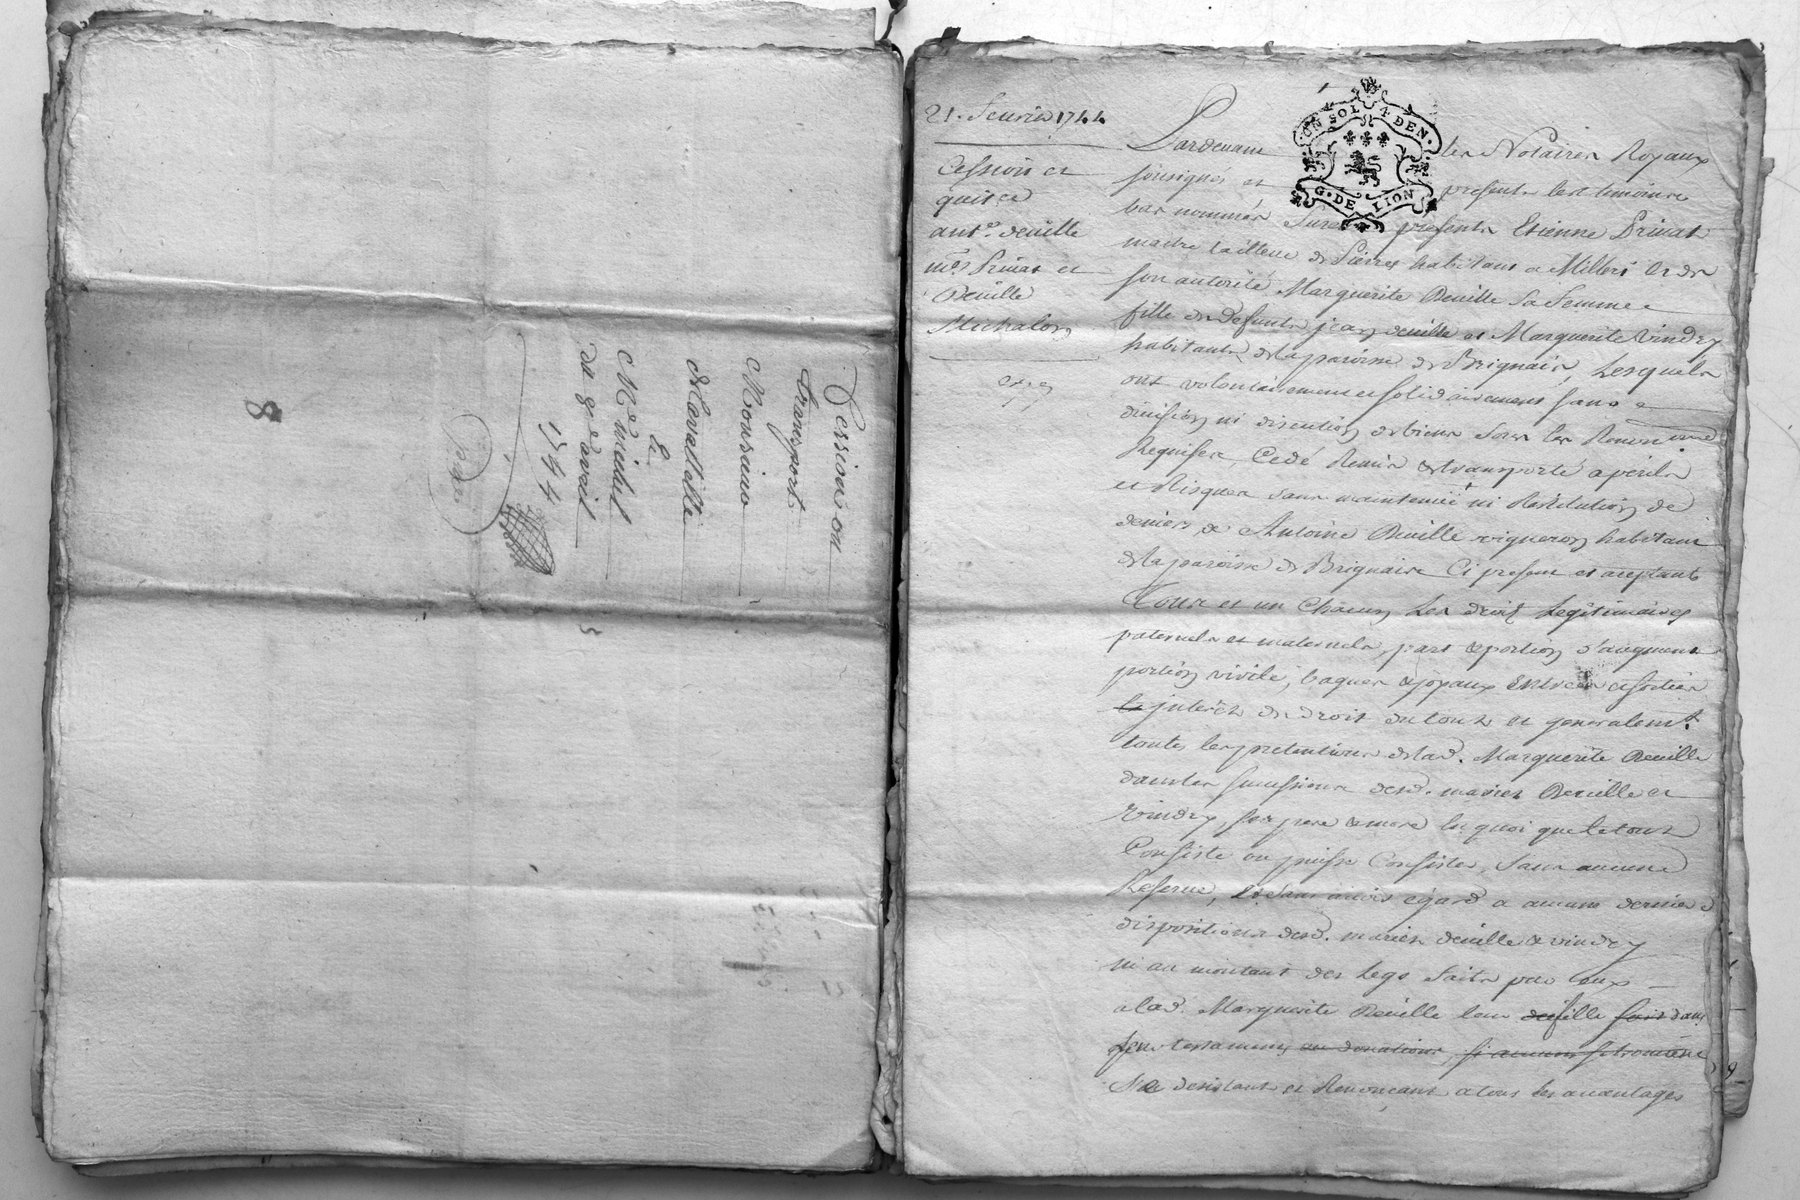 Cession ou
transport
Monsieur
de Navallette
a
Mr michel
du 8e avril
1744
8
21. fevrier 1744
Cession et
quitce
antne. deville
mes Privat et
Deville
Michalon
exp
ON SOL 4 DEN.
G. DE LION
Pardevant les Notaires Royaux
soussignés et presents les temoins
bas nommés furent presents Etienne Privat
maitre tailleur de Pierres habitant a Millery et de
son autorité Marguerite Deville sa femme
fille de defunts jean deville et Marguerite Vindry
habitants de la paroisse de Brignais, Lesquels
ont volontairement et solidairement sans
division ni discution de biens sous les Renon
Requises, Cedé Remis et transporté a perils
et Risques sans maintenüe ni Restitution de
deniers a Antoine Deville vigneron habitant
de la paroisse de Brignais Ci present et aceptant
Tous et un Chacun Les droits Legitimaires
paternels et maternels, part et portion d'augment
portion virile, bagues et joyaux Entrées et sorties
interêts de droit du tout et generalemt.
toutes les pretentions de lad. Marguerite Deville
dans les successions desd. mariés Deville et
Vindry, ses pere et mere En quoi que le tout
Consiste ou puisse Consister, sans aucune
Reserve, Et sans avoir égard a aucune derniere
dispositions desd. mariés deville et vindry
ni au montant des Legs faits par eux
a lad. Marguerite Deville leur fille fait dans
leur testament ou donations, si aucuns se trouvent
Se desistant et Renonçant a tous les avantages